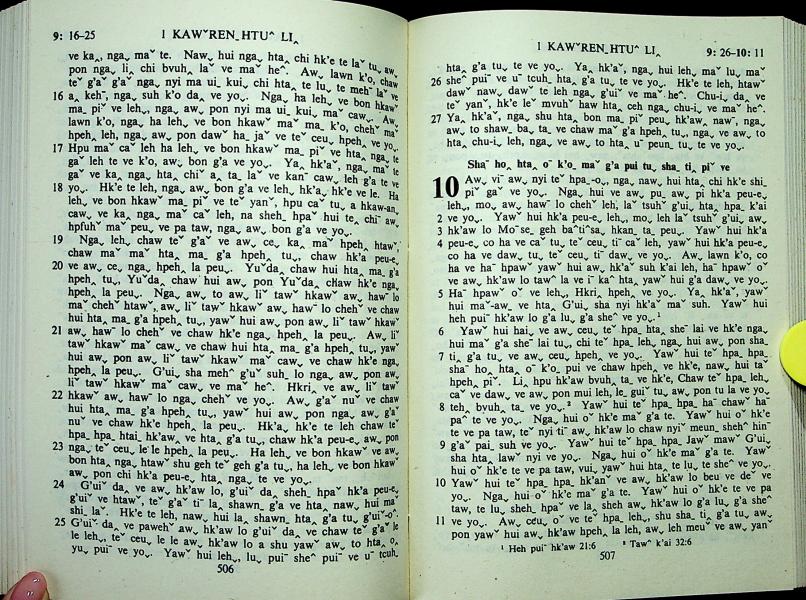 9: 16–25
I KAWˇRENˍHTUˆ LIꞈ
ve kaꞈ, ngaꞈ maˇ te. Nawˬ hui ngaꞈ htaꞈ chi hk'e te laˇ tuˬ awˬ
pon ngaˬ liꞈ chi bvuhꞈ laˇ ve maˇ heˆ. Awˬ lawn k'oˬ chaw
teˇ g'aˇ g'aˬ ngaˬ nyi ma uiˍ kuiˬ chi htaꞈ te luˬ te mehˉ laˇ ve
16 aˬ kehˉ, ngaˬ suh k'o daˬ ve yoˬ. Ngaˬ ha leh ve bon hkawˇ
maˍ piˇ ve lehˬ, ngaˬ awˬ pon nyi ma uiˍ kuiˬ maˇ cawˬ. Awˬ
lawn k'oˬ, ngaˬ ha leh ve bon hkawˇ maˇ maˍ k'oˬ, chehˇ maˇ
hpeh leh, ngaˬ awˬ pon dawˇ haˍ jaˇ ve teˇ ceuˬ hpehˬ ve yoˬ.
17 Hpu maˇ caˇ leh ha lehˬ ve bon hkawˇ maˍ piˇ ve htaꞈ ngaˬ te
gaˇ leh te ve k'oˬ, awˬ bon g'a ve yoˬ. Yaˬ hk'aˇ, ngaˬ maˇ te
gaˇ ve kaꞈ ngaˬ htaꞈ chiˇ aˬ taˍ laˇ ve kanˇ cawˬ leh g'a te ve
18 yoˬ. Hk'e te leh, ngaˬ awˬ bon g'a ve lehˬ hk'aˬ hk'e ve le. Ha
lehˬ ve bon hkawˇ maˍ piˇ ve te˘ yanˇ, hpu caˇ tuˬ a hkaw-anˬ
cawˬ ve kaꞈ, ngaˬ maˇ caˇ leh, na shehˍ hpaˇ hui teˬ chiˇ awˬ
hpfuhˇ maˇ peuˬ ve pa taw, ngaˬ awˬ bon g'a ve yoˬ.
19 Ngaˬ lehˬ, chaw teˇ g'aˇ ve awˬ ceˬ kaꞈ maˇ hpehˬ htawˇ,
chaw maˇ maˇ htaꞈ maˍ g'a hpehˬ tuˬ, chaw hk'a peu-eˬ
20 ve awˬ ceˬ ngaˬ hpehˬ la peuˬ. Yuˇda chaw hui htaꞈ maˍ g'a
hpeh tuˬ, Yuˇda chaw hui awˬ pon Yuˇda chaw hk'e ngaˬ
hpehˬ la peuˬ. Ngaˬ aw to awˬ liˇ tawˇ hkawˇ awˬ hawˇ lo
maˇ chehˇ htawˇ, awˬ liˇ tawˇ hkawˇ awˬ hawˇ lo chehˇ ve chaw
hui htaꞈ maˍ g'a hpeh tuˬ, yawˇ hui awˬ pon awˬ liˇ tawˇ hkawˇ
21 awˬ hawˇ lo chehˇ ve chaw hk'e ngaˬ hpehˬ la peuˬ. Awˬ liˇ
tawˇ hkawˇ maˇ cawˬ ve chaw hui htaꞈ maˍ g'a hpeh tuˬ, yawˇ
hui awˬ pon awˬ liˇ tawˇ hkawˇ maˇ cawˬ ve chaw hk'e ngaˬ
hpehˬ la peuˬ. G'uiˬ sha mehˆ g'uˇ suhˍ lo ngaˬ awˬ pon awˬ
liˇ tawˇ hkawˇ maˇ cawˬ ve maˇ heˆ. Hkriˬ ve awˬ liˇ tawˇ
22 hkawˇ awˬ hawˇ lo ngaˬ chehˇ ve yoˬ. Awˬ g'aˇ nuˇ ve chaw
hui htaꞈ maˍ g'a hpeh tuˬ, yawˇ hui awˬ pon ngaˬ awˬ g'aˇ
nuˇ ve chaw hk'e hpehˬ la peuˬ. Hk'aˬ hk'e te leh chaw teˇ
hpaˍ hpaˍ htaiˬ hk'awˬ ve htaꞈ g'a tuˬ, chaw hk'a peu-eˬ awˬ pon
23 ngaˬ teˇ ceuˬ le le hpehˬ la peuˬ. Ha lehˬ ve bon hkawˇ ve awˬ
bon htaꞈ ngaˬ htawˇ shu geh teˇ geh g'a tuˬ, ha lehˬ ve bon hkawˇ
awˬ pon chi hk'a peu-eˬ htaꞈ ngaˬ te ve yoˬ.
24 G'uiˇ daˬ ve awˬ hk'aw lo, g'uiˇ daˬ shehˍ hpaˇ hk'a peu-eˬ
g'uiˇ ve htawˇ, teˇ g'aˇ tiˉ laˬ shawnˍ g'a ve htaꞈ nawˬ hui maˇ
shiˍ laˇ. Hk'e te leh, nawˬ hui laˬ shawnˍ htaꞈ g'a tuˬ g'uiˇ-oˆ.
25 G'uiˇ daˬ ve pawehˇ awˬ hk'aw lo g'uiˇ daˬ ve chaw teˇ g'aˇ le
le lehˬ, teˇ ceuˬ le le awˬ hk'aw lo a shu yawˇ awˬ to htaꞈ oˬ
yuˬ puiˉ ve yoˬ. Yawˇ hui lehˬ, luˬ puiˉ sheˆ puiˉ ve uˉ tcuhˬ
506
I KAWˇRENˍHTUˆ LIꞈ
9: 26–10: 11
htaꞈ g'a tuˬ te ve yoˬ. Yaˬ hk'aˇ, ngaˬ hui leh maˇ luˬ maˇ
26 sheˆ puiˉ ve uˉ tcuhˬ htaꞈ g'a tuˬ te ve yoˬ. Hk'e te leh, htawˇ
dawˇ nawˬ dawˇ te leh ngaˬ g'uiˇ ve maˇ heˆ. Chu-iˬ daˬ ve
teˇ yanˇ, hk'e leˇ mvuhˇ haw htaꞈ ceh ngaˬ chu-iˬ ve maˇ heˆ.
27 Yaˬ hk'aˇ, ngaˬ shu htaꞈ bon maˍ piˇ peuˬ hk'awˬ nawˉ, ngaˬ
aw to shawˍ baˬ taˍ ve chaw maˇ g'a hpehˬ tuˬ, ngaˬ ve aw to
htaꞈ chu-iˬ leh, ngaˬ ve aw to htaꞈ uˉ peunˬ tuˬ te ve yoˬ.
Shaˉ hoˬ htaꞈ oˇ k'oˬ maˇ g'a pui tuˬ shaˍ tiˬ piˇ ve
10 Awˬ viˉ awˬ nyi teˇ hpaˍ-oˬ, ngaˬ nawˬ hui htaꞈ chi hk'e shiˍ
piˇ gaˇ ve yoˬ. Ngaˬ hui ve awˬ puˬ awˬ pi hk'a peu-eˬ
lehˬ, moˬ awˬ hawˇ lo chehˇ leh, laˇ tsuhˇ g'uiˬ htaꞈ hpaˍ k'ai
2 ve yoˬ. Yawˇ hui hk'a peu-eˬ lehˬ, moˬ leh laˇ tsuhˇ g'uiˬ awˬ
3 hk'aw lo Moˉseˍ geh baˇtiˆsaˬ hkanˬ taˍ peuˬ. Yawˇ hui hk'a
4 peu-eˬ co ha ve caˇ tuˬ teˇ ceuˬ tiˉ caˇ leh, yawˇ hui hk'a peu-eˬ
co ha ve dawn tuˬ teˇ ceuˬ tiˉ dawˬ ve yoˬ. Awˬ lawn k'oˬ, co
ha ve haˉ hpawˇ yawˇ hui awˬ hk'aˇ suh k'ai leh, haˉ hpawˇ oˇ
ve awˬ hk'aw lo tawˆ la ve iˉ kaˆ htaꞈ, yawˇ hui g'a daw ve yoˬ.
5 Haˉ hpawˇ oˇ ve lehˬ, Hkriˬ hpehˬ ve yoˬ. Yaˬ hk'aˇ, yawˇ
hui maˇ-awˬ ve htaꞈ G'uiˬ sha nyi hk'aˇ maˇ suh. Yawˇ hui
heh puiˉ hk'aw lo g'a luˬ g'a sheˆ ve yoˬ.¹
6 Yawˇ hui haiˬ ve awˬ ceuˬ teˇ hpaˍ htaꞈ sheˉ lai ve hk'e ngaˬ
hui maˇ g'a sheˉ lai tuˬ, chi teˇ hpaˍ lehˬ, ngaˬ hui awˬ pon sha
7 tiˬ g'a tuˬ ve awˬ ceuˬ hpehˬ ve yoˬ. Yawˇ hui teˇ hpaˍ hpaˍ
shaˉ hoˬ htaꞈ oˇ k'oˬ pui ve chaw hpehˬ ve hk'e, nawˬ hui taˇ
hpehˬ piˇ. Liꞈ hpu hk'aw bvuhˬ taˍ ve hk'e, Chaw teˇ hpaˍ lehˬ,
caˇ ve dawˬ ve awˬ pon mui leh, leˬ guiˇ tuˬ awˬ pon tu la ve yoˬ,
8 tehˬ bvuhˬ taˍ ve yoˬ.² Yawˇ hui teˇ hpaˍ hpaˍ haˉ chawˇ haˉ
paˆ te ve yoˬ. Ngaˬ hui oˇ hk'e maˇ g'a te. Yawˇ hui oˇ hk'e
te ve pa taw, teˇ nyi tiˉ awˬ hk'aw lo chaw nyiˇ meunˍ shehˆ hinˉ
9 g'aˇ paiˍ suh ve yoˬ. Yawˇ hui teˇ hpaˍ hpaˍ Jaw maw G'uiˬ
sha htaꞈ lawˇ nyi ve yoˬ. Ngaˬ hui oˇ hk'e maˇ g'a te. Yawˇ
hui oˇ hk'e te ve pa taw, vuiˬ yawˇ hui htaꞈ te luˬ te sheˆ ve yoˬ.
10 Yawˇ hui teˇ hpaˍ hpaˍ hk'anˇ ve awˬ hk'aw lo beu ve deˇ ve
yoˬ. Ngaˬ hui oˇ hk'e maˇ g'a te. Yawˇ hui oˇ hk'e te ve pa
taw, te luˬ shehˍ hpaˇ ve laˬ sheh awˬ hk'aw lo g'a luˬ g'a sheˆ
11 ve yoˬ. Awˬ ceuˬ oˇ ve teˇ hpaˍ lehˬ, shu shaˍ tiˬ g'a tuˬ awˬ
pon yawˇ hui awˬ hk'aw hpehˬ la leh, awˬ leh meuˇ ve awˬ yanˇ
¹ Heh puiˉ hk'aw 21:6 ² Tawˆ k'ai 32:6
507